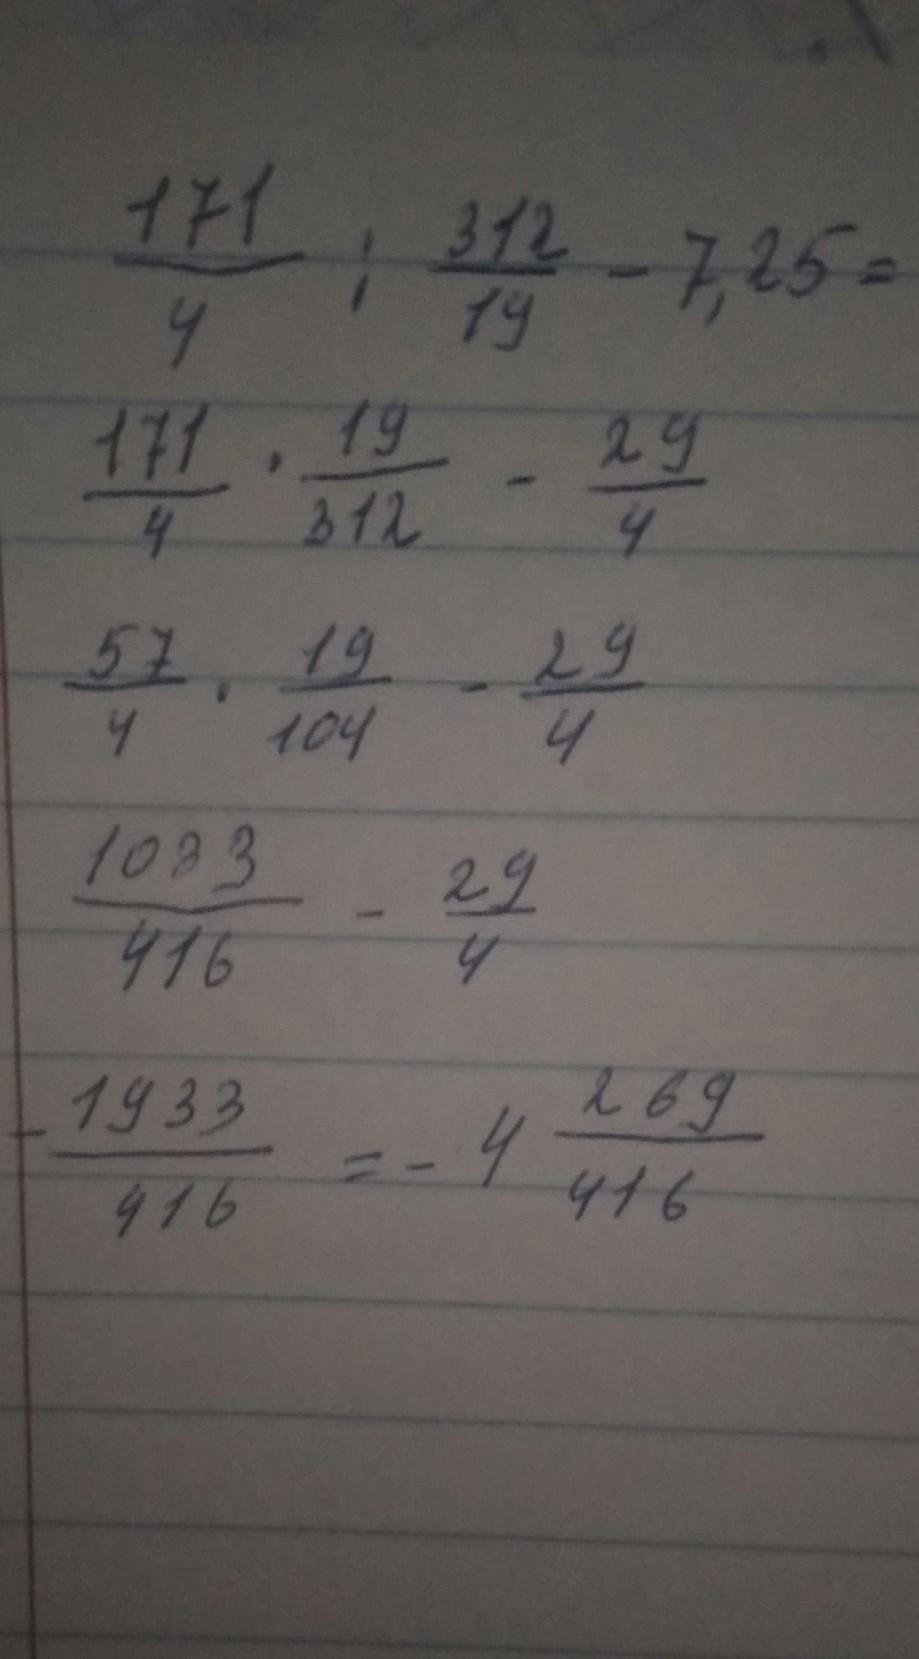 171/4 : 312/19 - 7,25 =
171/4 · 19/312 - 29/4
57/4 · 19/104 - 29/4
1083/416 - 29/4
- 1933/416 = - 4 269/416